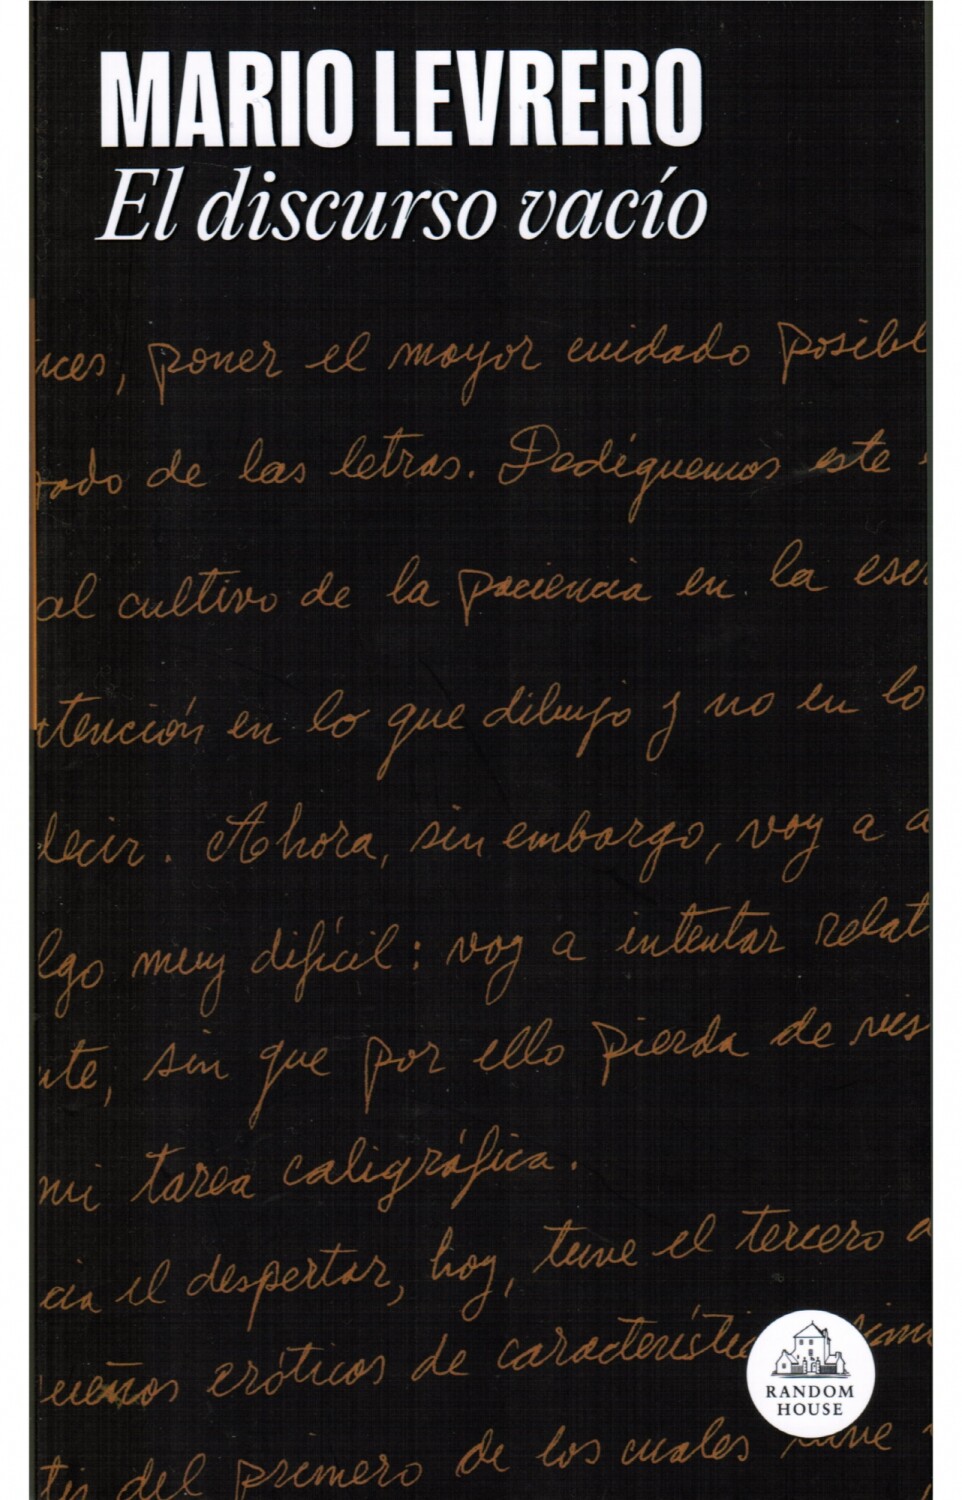 MARIO LEVRERO
El discurso vacío
nces, poner el mayor cuidado posibl
rado de las letras. Dediquemos este
al cultivo de la paciencia en la esc
tención en lo que dibujo y no en lo
decir. Ahora, sin embargo, voy a a
lgo muy difícil: voy a intentar relat
nte, sin que por ello pierda de vis
mi tarea caligráfica.
cia el despertar, hoy, tuve el tercero d
ueños eróticos de característic
RANDOM
HOUSE
tes del primero de los cuales tuve